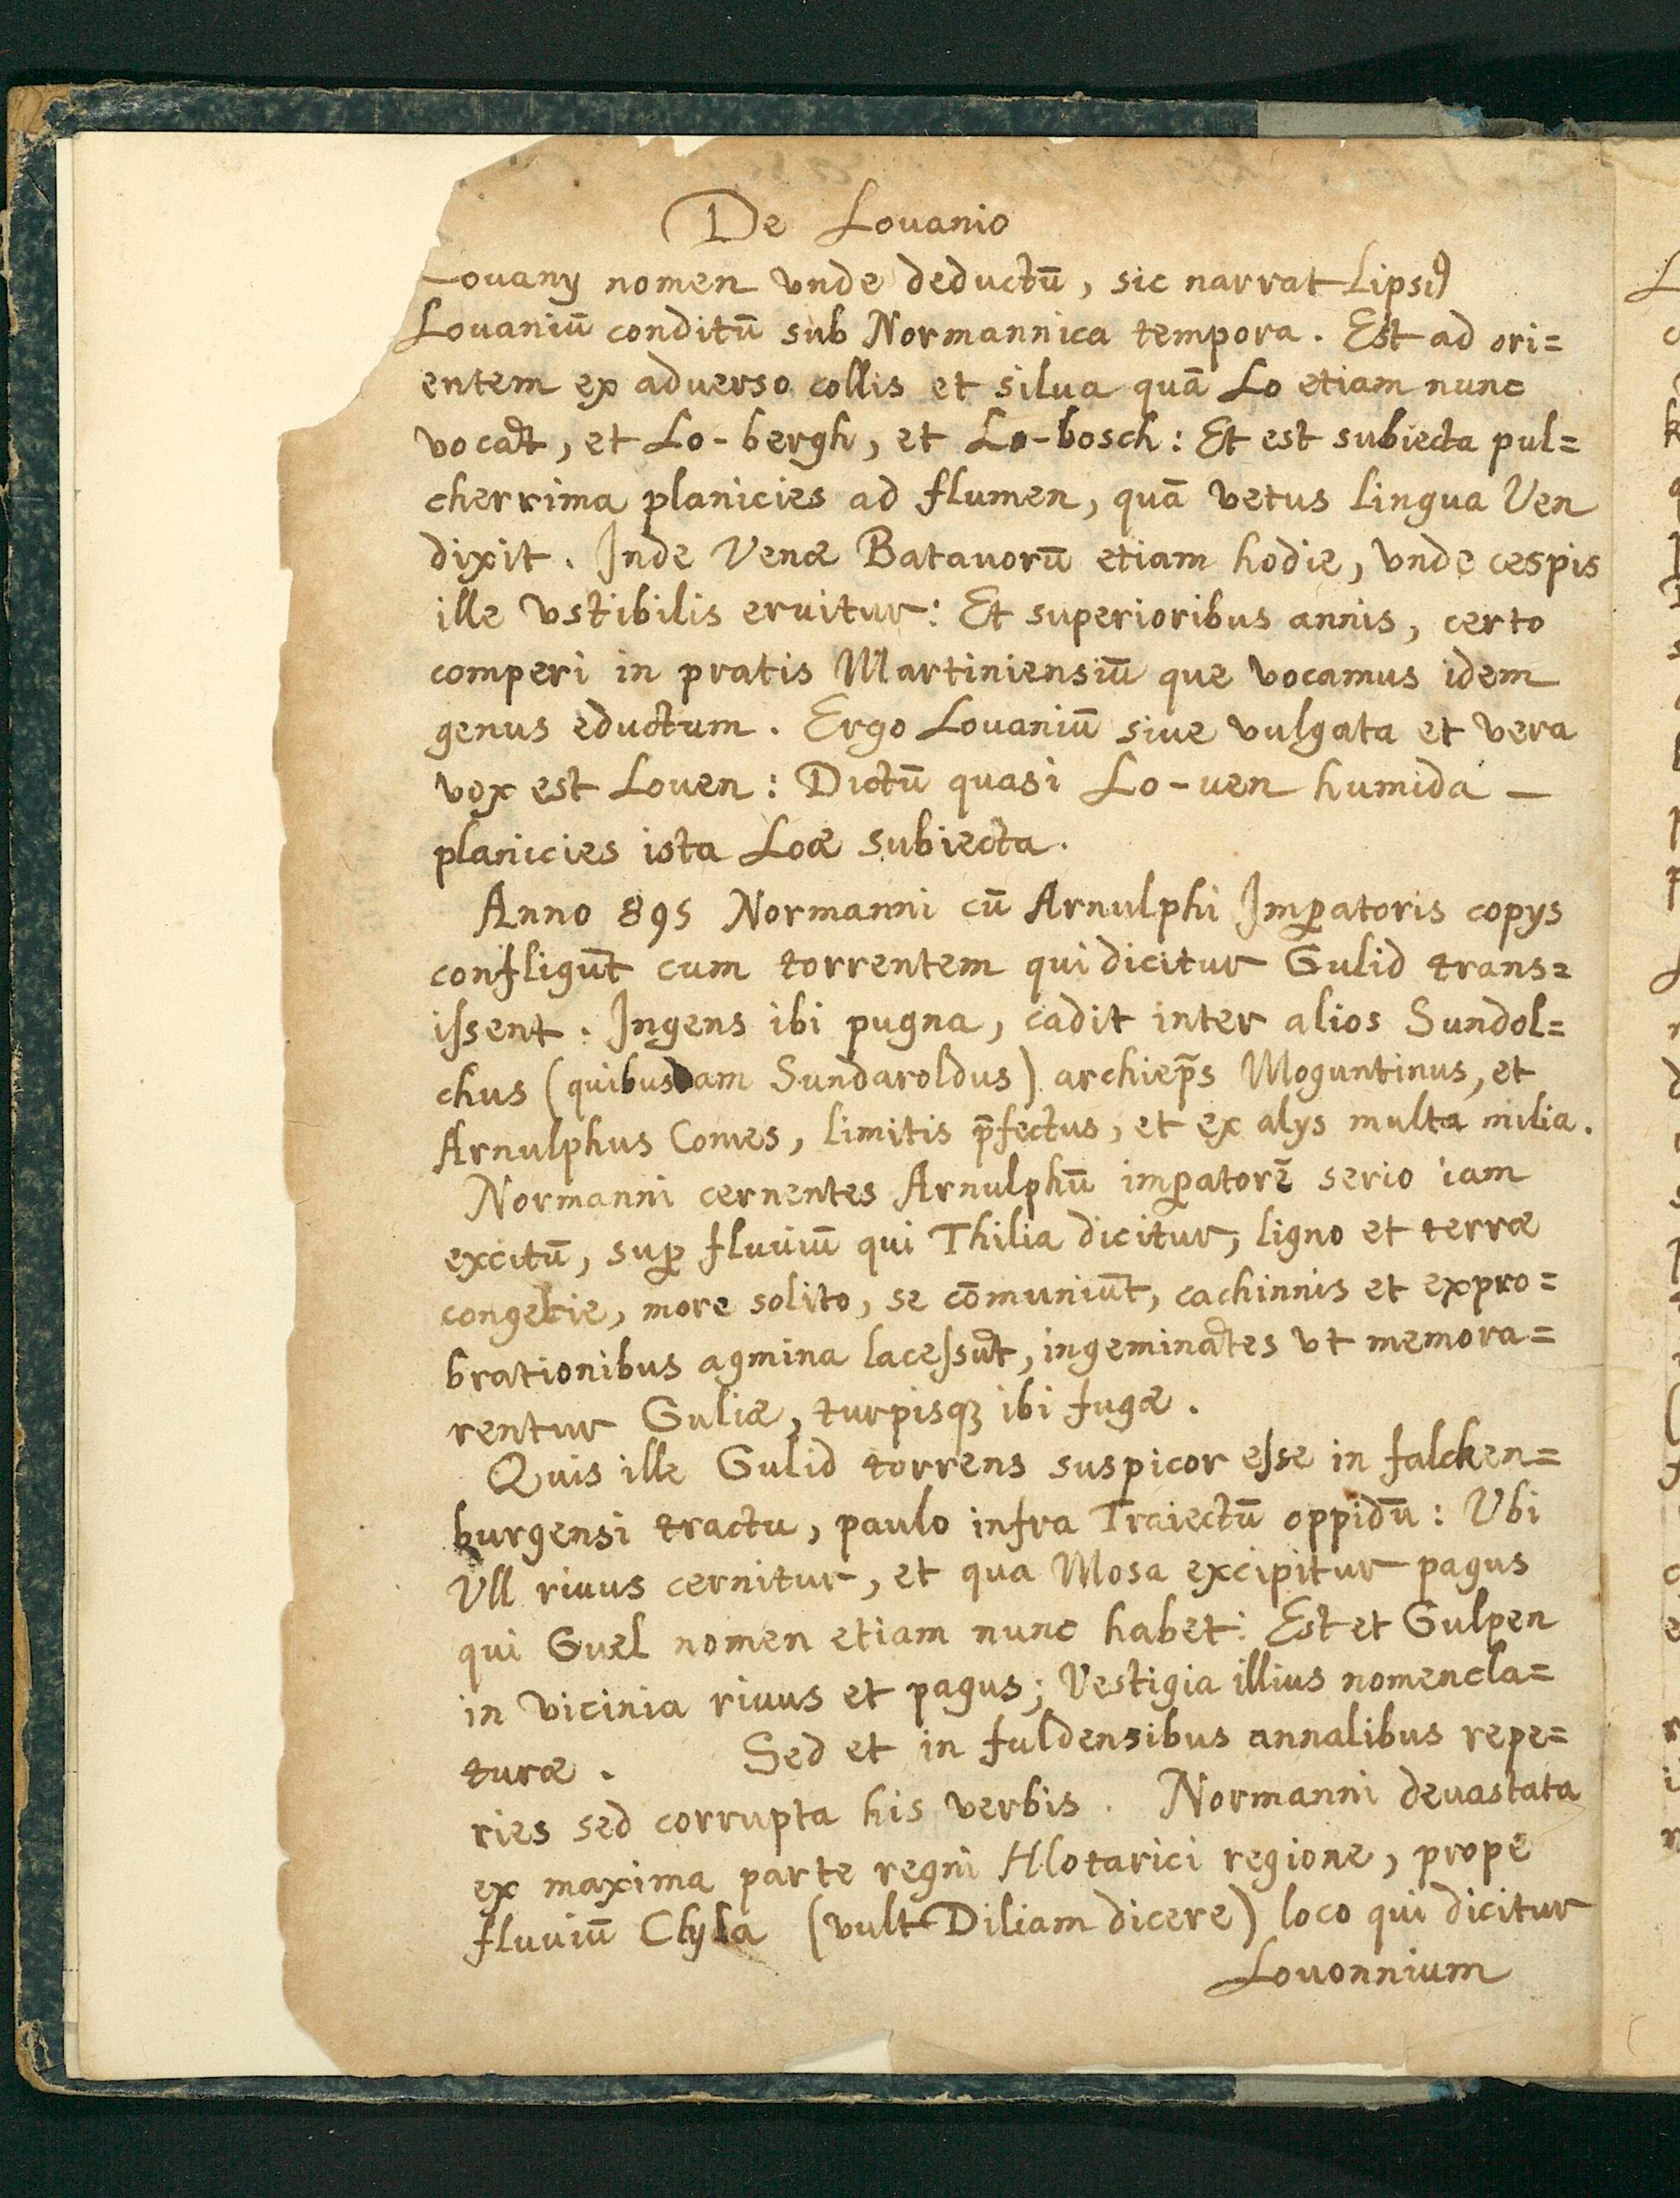 De Louanio
Louany nomen vnde deductū, sic narrat Lipsiꝰ
Louaniū conditū sub Normannica tempora. Est ad ori=
entem ex aduerso collis et silua quā Lo etiam nunc
vocāt, et Lo-bergh, et Lo-bosch: Et est subiecta pul=
cherrima planicies ad flumen, quā vetus lingua Ven
dixit. Inde Venæ Batauorū etiam hodie, vnde cespis
ille vstibilis eruitur: Et superioribus annis, certo
comperi in pratis Martiniensiū que vocamus idem
genus eductum. Ergo Louaniū siue vulgata et vera
vox est Louen: Dictū quasi Lo-uen humida —
planicies ista Loæ subiecta.
Anno 895 Normanni cū Arnulphi Imꝑatoris copys
confligūt cum torrentem qui dicitur Gulid trans=
iſsent. Ingens ibi pugna, cadit inter alios Sundol=
chus (quibusdam Sundaroldus) archiep̄s Moguntinus, et
Arnulphus Comes, limitis p̄fectus, et ex alys multa milia.
Normanni cernentes Arnulphū imꝑatorē serio iam
excitū, suꝑ fluuiū qui Thilia dicitur, ligno et terræ
congerie, more solito, se cōmuniūt, cachinnis et expro=
brationibus agmina laceſsūt, ingemināтes vt memora=
rentur Guliæ, turpisqꝫ ibi fugæ.
Quis ille Gulid torrens suspicor eſse in falcken=
burgensi tractu, paulo infra Traiectū oppidū: Vbi
Vll riuus cernitur, et qua Mosa excipitur pagus
qui Guel nomen etiam nunc habet: Est et Gulpen
in vicinia riuus et pagus; Vestigia illius nomencla=
turæ. Sed et in fuldensibus annalibus repe=
ries sed corrupta his verbis. Normanni deuastata
ex maxima parte regni Hlotarici regione, prope
fluuiū Clyla (vult Diliam dicere) loco qui dicitur
Louonnium